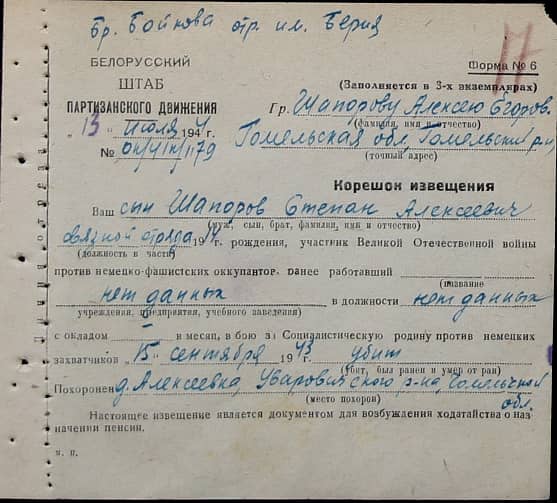 Бр. Бойкова отр. им. Берия
17
БЕЛОРУССКИЙ
ШТАБ
ПАРТИЗАНСКОГО ДВИЖЕНИЯ
Форма № 6
(Заполняется в 3-х экземплярах)
"13" июля 1944 г.
Гр. Шапорову Алексею Егоров.
(фамилия, имя и отчество)
№
Гомельская обл. Гомельский р-н
(точный адрес)
Корешок извещения
Ваш сын Шапоров Степан Алексеевич
(муж, сын, брат, фамилия, имя и отчество)
связной отряда 19 г. рождения, участник Великой Отечественной войны
(должность в части)
против немецко-фашистских оккупантов, ранее работавший
(название
нет данных в должности нет данных
учреждения, предприятия, учебного заведения)
с окладом — в месяц, в бою за Социалистическую родину против немецких
захватчиков "15" сентября 1943 г. убит
(убит, был ранен и умер от ран)
Похоронен д. Алексеевка, Уваровичского р-на, Гомельской
обл.
(место похорон)
Настоящее извещение является документом для возбуждения ходатайства о наз
начении пенсии.
м. п.